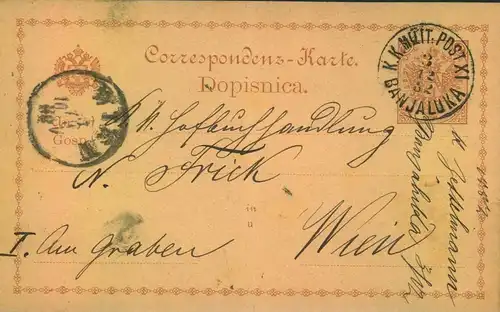 Correspondenz-Karte.
Dopisnica.
K.K. MILIT. POST XI
3
12
82
BANJALUKA
WIEN
Gosp
K. K. Hofbuchhandlung
W. Frick
in
u
Wien
I. Am Graben
Banjaluka